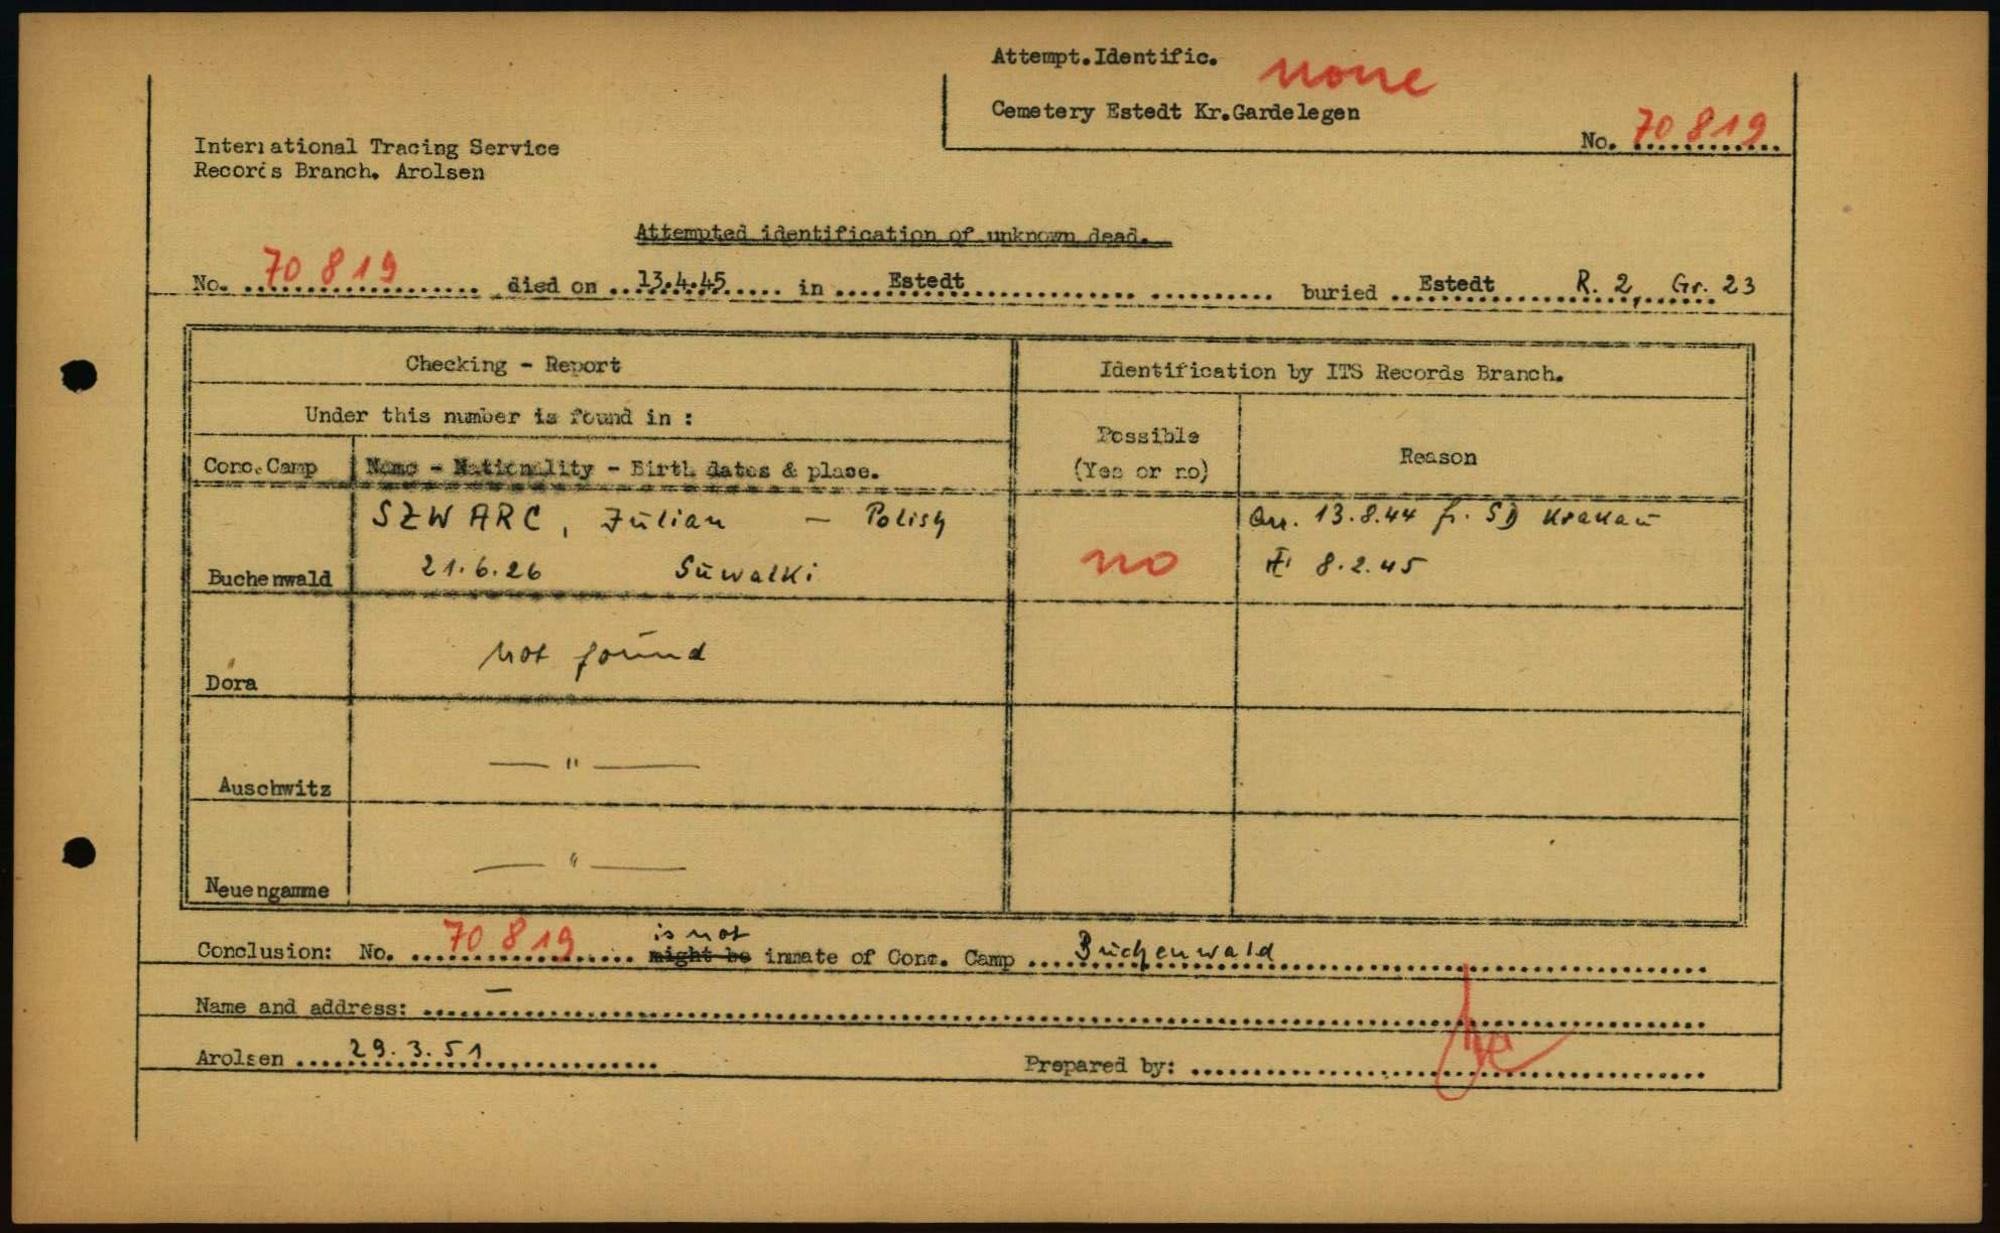 Attempt.Identific. none
Cemetery Estedt Kr.Gardelegen
No. 70819
International Tracing Service
Records Branch. Arolsen
Attempted identification of unknown dead.
No. 70819 died on 13.4.45 in Estedt buried Estedt R. 2, Gr. 23
Checking - Report
Identification by ITS Records Branch.
Under this number is found in :
Possible
(Yes or no)
Reason
Conc.Camp Name - Nationality - Birth dates & place.
SZWARC, Julian - Polish
Arr. 13.8.44 fr. SD Krakau
Buchenwald 21.6.26 Suwalki
no
8.2.45
Dora not found
Auschwitz — " —
Neuengamme — " —
Conclusion: No. 70819 might be is not inmate of Conc. Camp Buchenwald
Name and address: —
Arolsen 29.3.51 Prepared by: